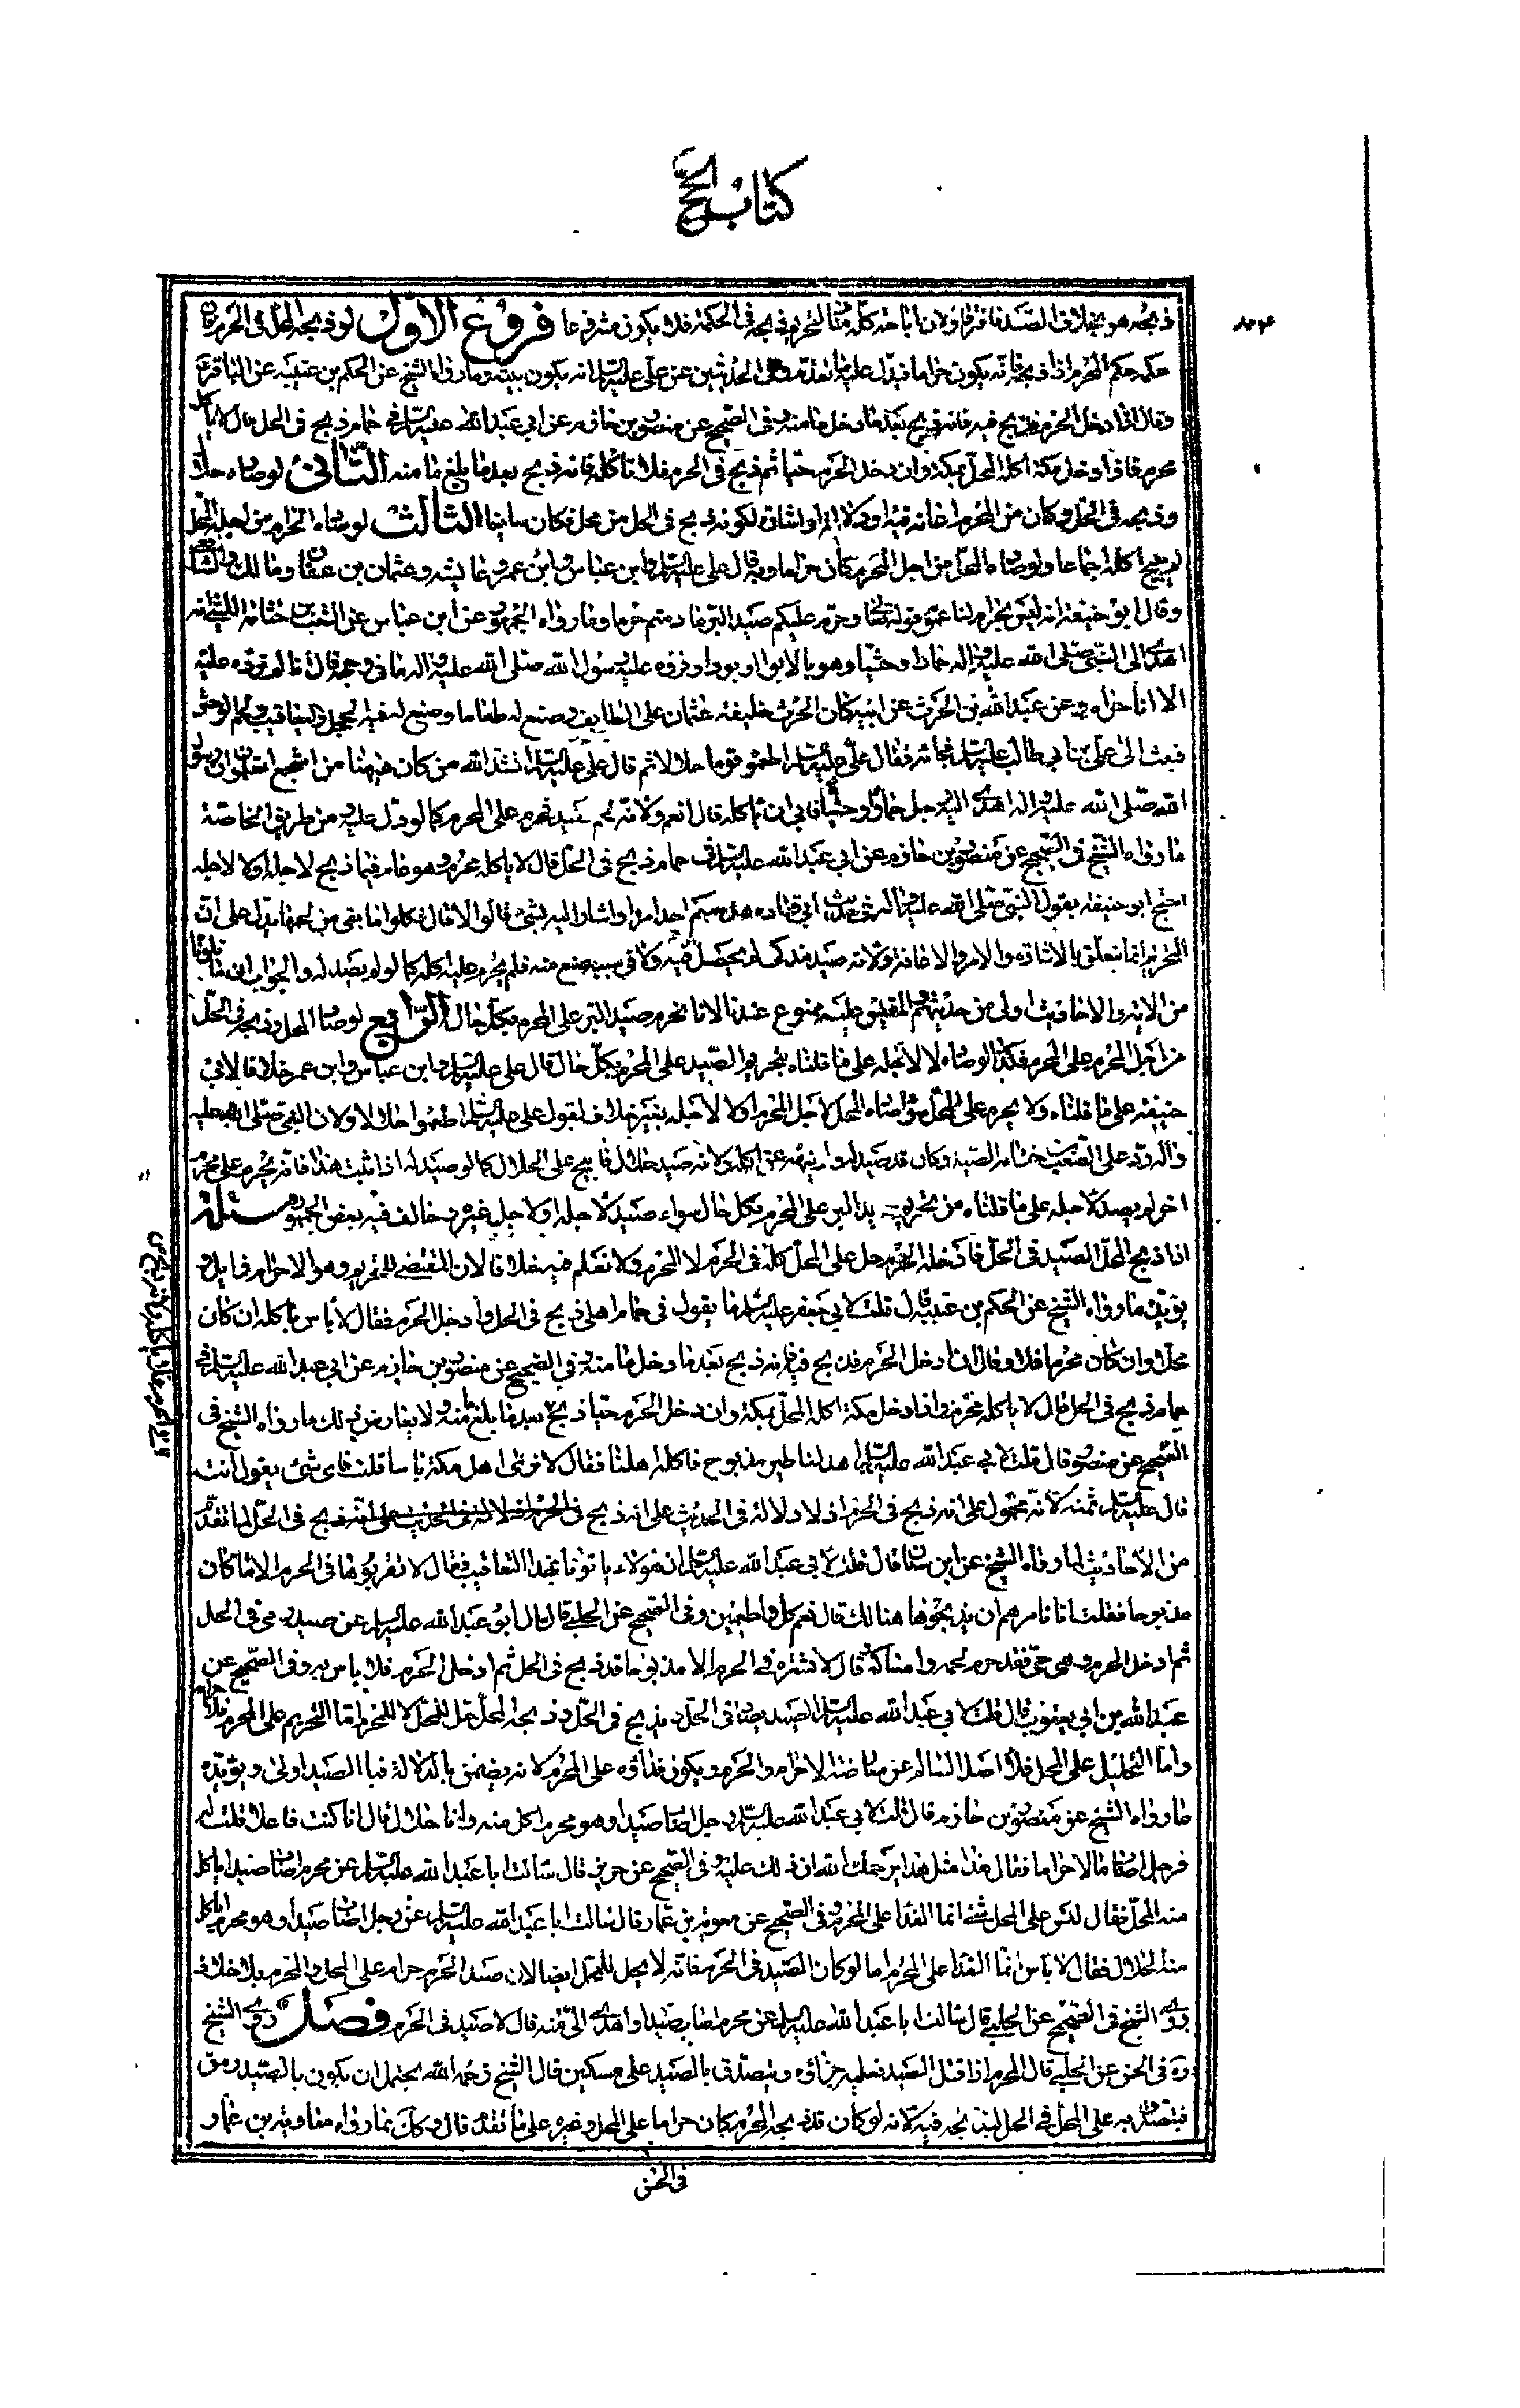 كتاب الحج
ذبحه هو بخلاف الصيد فافترقا ولان اباحته كله التحريم ذبحه في الحكمة فلا يكون مشروعا فروع الاول لو ذبحه المحل في الحرم كان
حكمه حكم المحرم اذا ذبحه فانه يكون حراما يدل عليه ما تقدم في الحديثين عن علي عليه السلام انه يكون ميته وما رواه الشيخ عن الحكم بن عتيبه عن الباقر ع
وقال اذا ادخل الحرم فذبح فيه فانه ذبح بعد ما دخل مامنه وفي الصحيح عن منصور بن حازم عن ابي عبد الله عليه السلام في حمام ذبح في الحل قال لا ياكله
محرم فاذا ادخل مكة اكله المحل بمكة وان دخل الحرم حيا ثم ذبح في الحرم فلا تاكله فانه ذبح بعد ما بلغ مامنه الثاني لو صاده حلال
وذبحه في الحل وكان من المحرم اعانه فيه او دلالة او اشارة لكونه ذبح في الحل من محل فكان سايغا الثالث لو صاده الحرام من اجل المحل
لم يبح اكله اجماعا ولو صاده المحل من اجل المحرم كان حراما وبه قال علي عليه السلام وابن عباس وابن عمر وعايشه وعثمان بن عفان ومالك والشافعي
وقال ابو حنيفة انه ليس بحرام لنا عموم قوله تعالى وحرم عليكم صيد البر ما دمتم حرما وما رواه الجمهور عن ابن عباس عن الصعب بن جثامة الليثي انه
اهدى الى النبي صلى الله عليه واله حمارا وحشيا وهو بالابواء او بودان فرده عليه رسول الله صلى الله عليه واله فلما راى ما في وجهه قال انا لم نرده عليك
الا انا حرم وعن عبد الله بن الحرث عن ابيه كان الحرث خليفة عثمان على الطايف فصنع له طعاما وصنع فيه الحجل واليعاقيب ولحم الوحش
فبعث الى علي بن ابي طالب عليه السلام فجاءه فقال علي عليه السلام اطعموه قوما حلالا ثم قال علي عليه السلام انشد الله من كان هيهنا من اشجع اتعلمون ان رسول
الله صلى الله عليه واله اهدى اليه رجل حمارا وحشيا فابى ان ياكله قال نعم ولانه لحم صيد فحرم على المحرم كما لو دل عليه ومن طريق الخاصة
ما رواه الشيخ في الصحيح عن منصور بن حازم عن ابي عبد الله عليه السلام في حمام ذبح في الحل قال لا ياكله محرم وهو عام فيما ذبح لاجله او لا لاجله
احتج ابو حنيفه بقول النبي صلى الله عليه واله في حديث ابي قتاده هل منكم احد امره او اشار اليه بشئ قالوا لا قال فكلوا ما بقي من لحمها فيدل على ان
التحريم انما يتعلق بالاشارة والامر والاعانة ولانه صيد مذكى لم يحصل فيه ولا في سببه صنع منه فلم يحرم عليه اكله كما لو لم يصد له والجواب ان ما تلوناه
من الاية والاحاديث اولى من حديثهم والمقيس عليه ممنوع عندنا لانا نحرم صيد البر على المحرم بكل حال الرابع لو صاد المحل وذبحه في الحل
من اجل المحرم على المحرم فكذا لو صاده لا لاجله على ما قلناه بتحريم الصيد على المحرم بكل حال قال علي عليه السلام وابن عباس وابن عمر خلافا لابي
حنيفه على ما قلناه ولا يحرم على المحل سواء صاده المحل لاجل المحرم او لا لاجله بغير خلاف لقول علي عليه السلام اطعموا حلالا ولان النبي صلى الله عليه
واله رد على الصعب بن جثامه الصيد وكان قد صيد له ولم ينهه عن اكله ولانه صيد حلال فابيح على الحلال كما لو صيد له اذا ثبت هذا فانه يحرم على محرم
اخر لم يصد لاجله على ما قلناه من تحريم صيد البر على المحرم بكل حال سواء صيد لاجله او لاجل غيره خالف فيه بعض الجمهور مسئلة
اذا ذبح المحل الصيد في الحل فادخله الحرم حل على المحل اكله في الحرم لا المحرم ولا نعلم فيه خلافا لان المقتضي للتحريم وهو الاحرام زايل و
يؤيده ما رواه الشيخ عن الحكم بن عتيبة قال قلت لابي جعفر عليه السلام ما يقول في حمام اهلي ذبح في الحل وادخل الحرم فقال لا باس باكله ان كان
محلا وان كان محرما فلا وقال ان ادخل الحرم فذبح فيه فانه ذبح بعد ما دخل مامنه وفي الصحيح عن منصور بن حازم عن ابي عبد الله عليه السلام في
حمام ذبح في الحل قال لا ياكله محرم واذا دخل مكة اكله المحل بمكة وان دخل الحرم حيا ذبح بعد ما بلغ مامنه ولا يعارض ذلك ما رواه الشيخ في
الصحيح عن منصور قال قلت لابي عبد الله عليه السلام اهدي لنا طير مذبوح فاكله اهلنا فقال لا ترى اهل مكة باسا قلت فاى شئ يقول انت
قال عليه السلام ثمنه لانه محمول على انه ذبح في الحرم اذ لا دلالة في الحديث على انه ذبح في الحل لما تقدم
من الاحاديث لما رواه الشيخ عن ابن سنان قال قلت لابي عبد الله عليه السلام ان هؤلاء ياتونا بهذه اليعاقيب فقال لا تقربوها في الحرم الا ما كان
مذبوحا فقلت انا نامرهم ان يذبحوها هنالك قال نعم كل واطعمني وفي الصحيح عن الحلبي قال سال ابو عبد الله عليه السلام عن صيد رمي في الحل
ثم ادخل الحرم وهو حي فقد حرم لحمه وامساكه قال لا تشتره في الحرم الا مذبوحا قد ذبح في الحل ثم ادخل الحرم فلا باس به وفي الصحيح عن
عبد الله بن ابي يعفور قال قلت لابي عبد الله عليه السلام الصيد يصاد في الحل ويذبح في الحل وذبحه المحل حل للمحل لا للمحرم اما التحريم على المحرم فلانه حرام
واما التحليل على المحل فلان اصل السالم عن معارضة الاحرام والحرم ويكون فداؤه على المحرم لانه يضمن بالدلالة فبالصيد اولى ويؤيده
ما رواه الشيخ عن منصور بن حازم قال قلت لابي عبد الله عليه السلام رجل اصاب صيدا وهو محرم اكل منه وانا حلال قال انا كنت فاعلا قلت له
فرجل اصاب مالا حراما فقال هذا مثل هذا يرحمك الله ان ذلك عليه وفي الصحيح عن حريز قال سالت ابا عبد الله عليه السلام عن محرم اصاب صيدا اياكل
منه المحل فقال ليس على المحل شئ انما الفداء على المحرم وفي الصحيح عن معوية بن عمار قال سالت ابا عبد الله عليه السلام عن رجل اصاب صيدا وهو محرم اياكل
منه الحلال فقال لا باس انما الفداء على المحرم اما لو كان الصيد في الحرم فانه لا يحل للمحل ايضا لان صيد الحرم حرام على المحل والمحرم بلا خلاف
روى الشيخ في الصحيح عن الحلبي قال سالت ابا عبد الله عليه السلام عن محرم اصاب صيدا واهدى الى منه قال لا صيد في الحرم فصل روى الشيخ
ره في الحسن عن الحلبي قال المحرم اذا قتل الصيد فعليه جزاؤه ويتصدق بالصيد على مسكين قال الشيخ رحمه الله يحتمل ان يكون بالصيد رمق
فيتصدق به على المحل في الحل ليذبحه فيه لانه لو كان قد ذبحه المحرم كان حراما على المحل وغيره على ما تقدم قال وكل ما رواه معاوية بن عمار
في الحسن